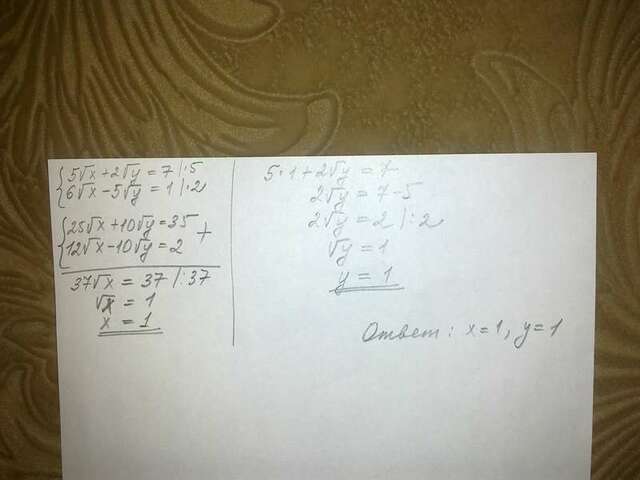 5√x + 2√y = 7 |·5
6√x - 5√y = 1 |·2
25√x + 10√y = 35
12√x - 10√y = 2 +
37√x = 37 |:37
√x = 1
x = 1
5·1 + 2√y = 7
2√y = 7-5
2√y = 2 |:2
√y = 1
y = 1
Ответ: x=1, y=1